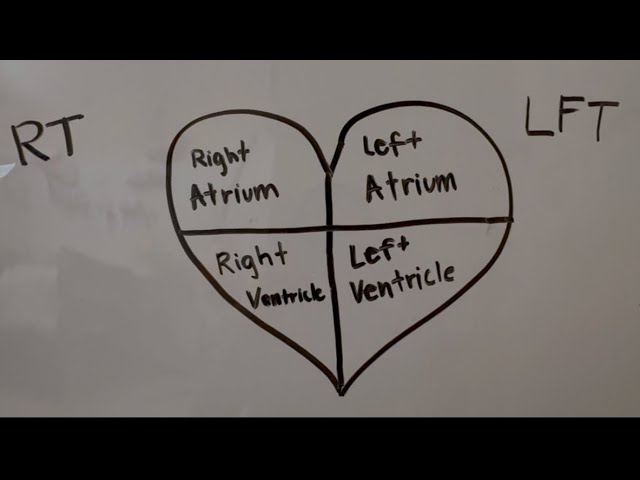 RT
LFT
Right
Atrium
Left
Atrium
Right
Ventricle
Left
Ventricle